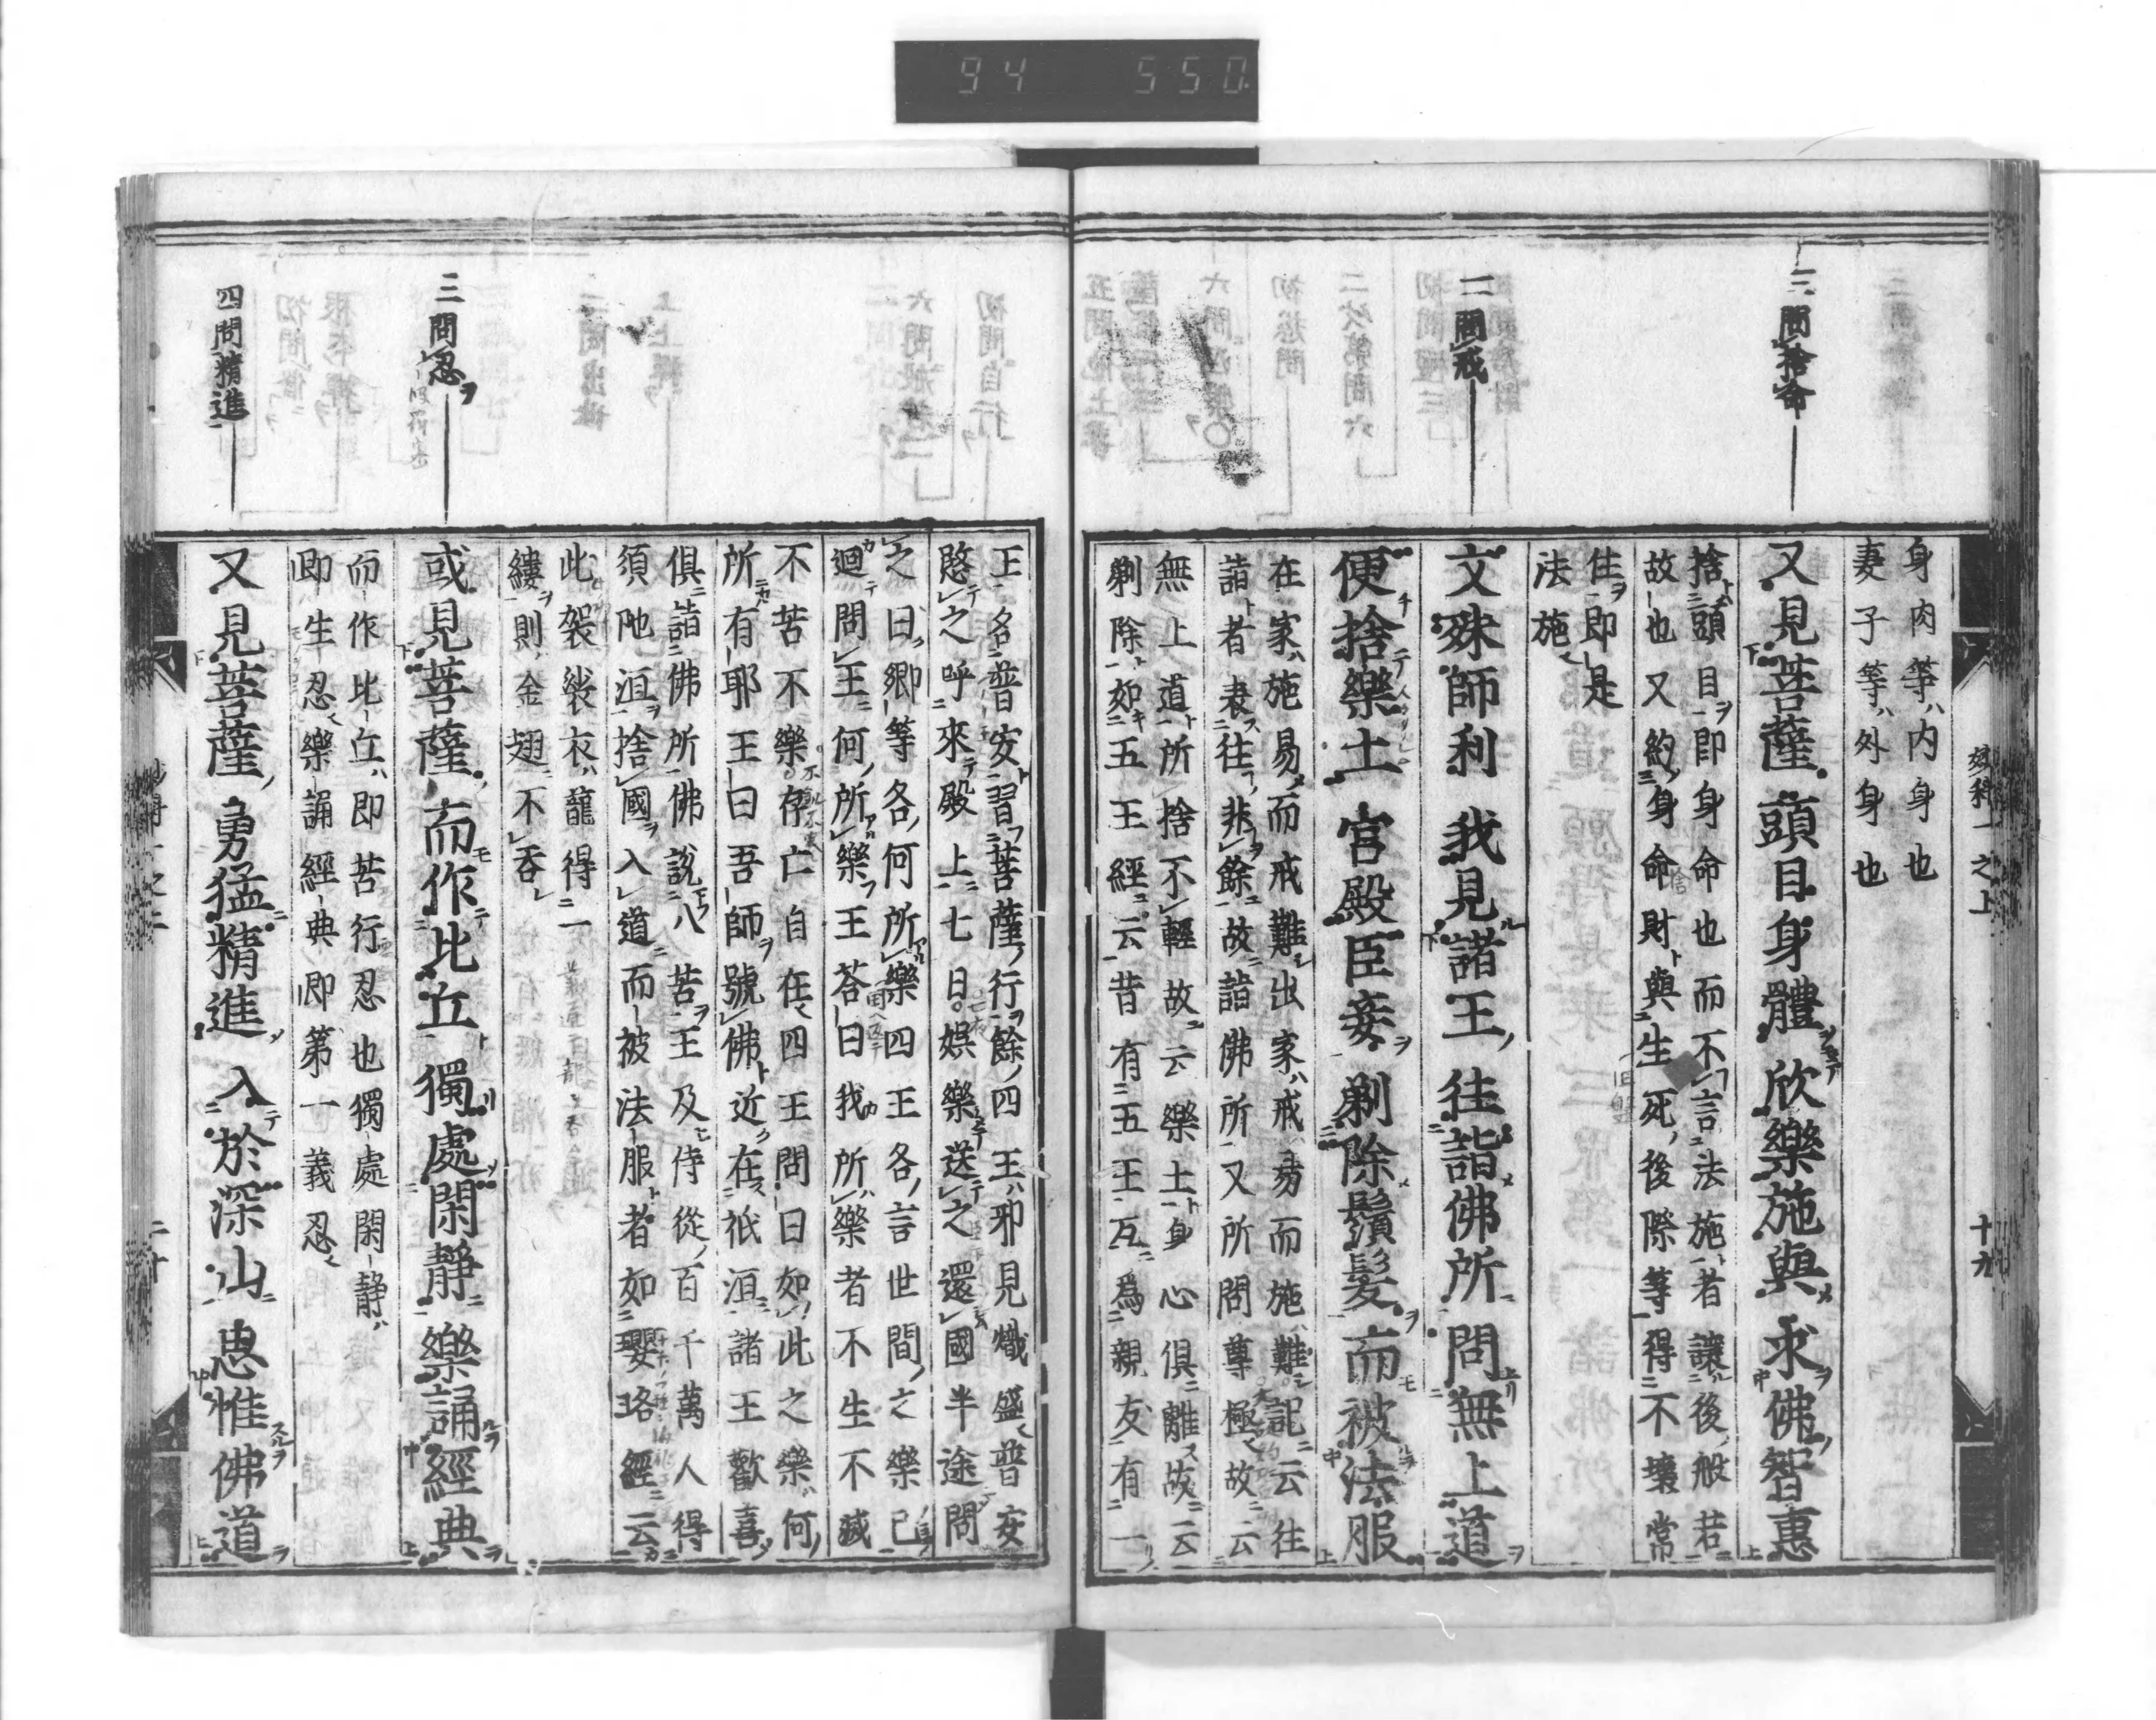 94 550
三問捨命
二問戒
身肉等内身也
妻子等外身也
又見菩薩頭目身體欣樂施與求佛智惠
捨頭目即身命也而不言法施者讓後般若
故也又約身命財與生死後際等得不壞常
住即是
法施
文殊師利我見諸王往詣佛所問無上道
便捨樂土宮殿臣妾剃除鬚髮而被法服
在家施易而戒難出家戒易而施難記云往
詣者表往非餘故詣佛所又所問尊極故云
無上道所捨不輕故云樂土身心俱離故云
剃除如五王經云昔有五王互為親友有一
十九
三問忍
四問精進
王名普安習菩薩行餘四王邪見熾盛普安
愍之呼來殿上七日娯樂送之還國半途問
之曰卿等各何所樂四王各言世間之樂已
迴問王何所樂王荅曰我所樂者不生不滅
不苦不樂不存亡自在四王問曰如此之樂何
所有耶王曰吾師號佛近在祇洹諸王歡喜
俱詣佛所佛說八苦王及侍從百千萬人得
須陁洹捨國入道而被法服者如瓔珞經云
此袈裟衣龍得一
縷則金翅不吞
或見菩薩而作比丘獨處閑靜樂誦經典
而作比丘即苦行忍也獨處閑靜
即生忍樂誦經典即第一義忍
又見菩薩勇猛精進入於深山思惟佛道
二十